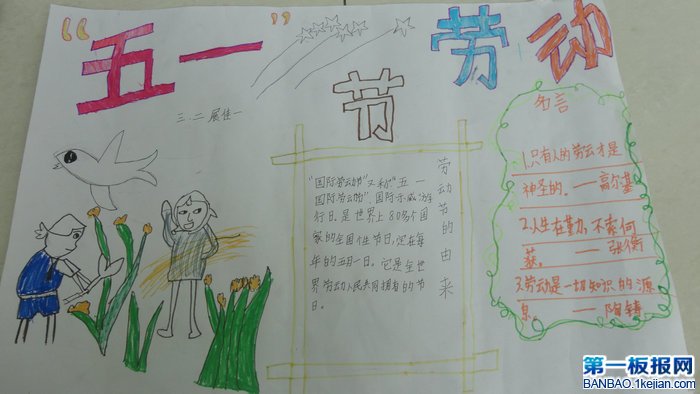 “五一”劳动
节
三.二 展佳一
劳动节的由来
“国际劳动节”又称“五一
国际劳动节”、国际示威游
行日。是世界上80多个国
家的全国性节日。定在每
年的五月一日。它是全世
界劳动人民共同拥有的节
日。
名言
1.只有人的劳动才是
神圣的。——高尔基
2.人生在勤,不索何
获。——张衡
3.劳动是一切知识的源
泉。——陶铸
第一板报网
BANBAO.1kejian.com